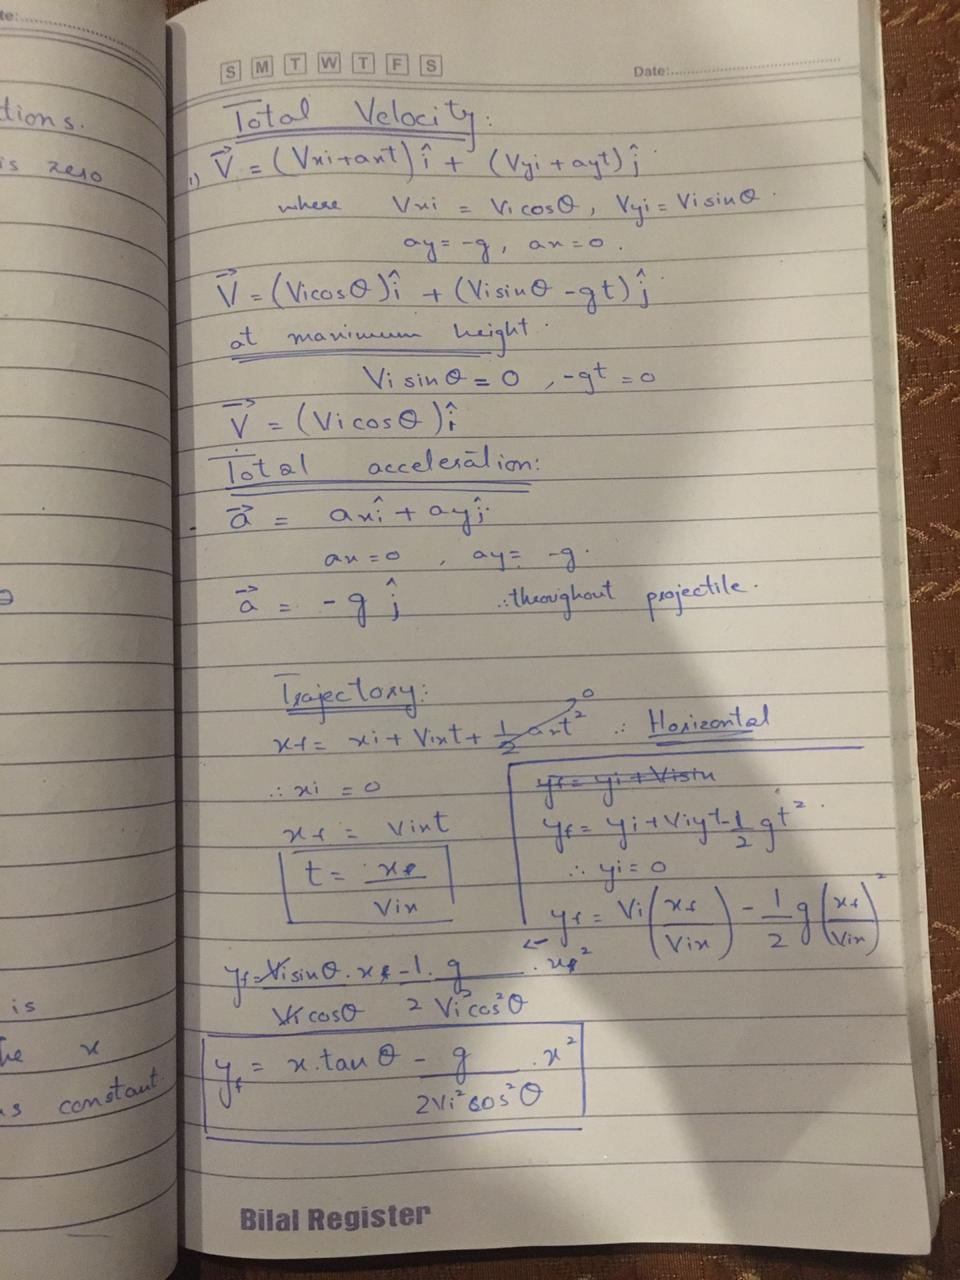 te:
tions.
is zero
is
he x
as constant.
S M T W T F S
Date:
Total Velocity:
1) V⃗ = (Vxi+axt) î + (Vyi + ayt) ĵ
where Vxi = Vi cosθ, Vyi = Vi sinθ.
ay = -g, ax = 0.
V⃗ = (Vicosθ) î + (Visinθ - gt) ĵ
at maximum height.
Vi sinθ = 0, -gt = 0
V⃗ = (Vi cosθ) î
Total acceleration:
a⃗ = ax î + ay ĵ
ax = 0, ay = -g.
a⃗ = -g ĵ ∴ throughout projectile.
Trajectory:
xf = xi + Vixt + 1/2 axt² 0 ∴ Horizontal
∴ xi = 0
xf = Vixt
t = xf/Vix
yf = yi + Visin
yf = yi + Viyt - 1/2 gt².
∴ yi = 0
yf = Vi (xf/Vix) - 1/2 g (xf/Vix)²
←
yf = Visinθ/Vicosθ . xf - 1/2 . g/Vi²cos²θ . xf²
yf = x.tanθ - g/2Vi²cos²θ . x²
Bilal Register